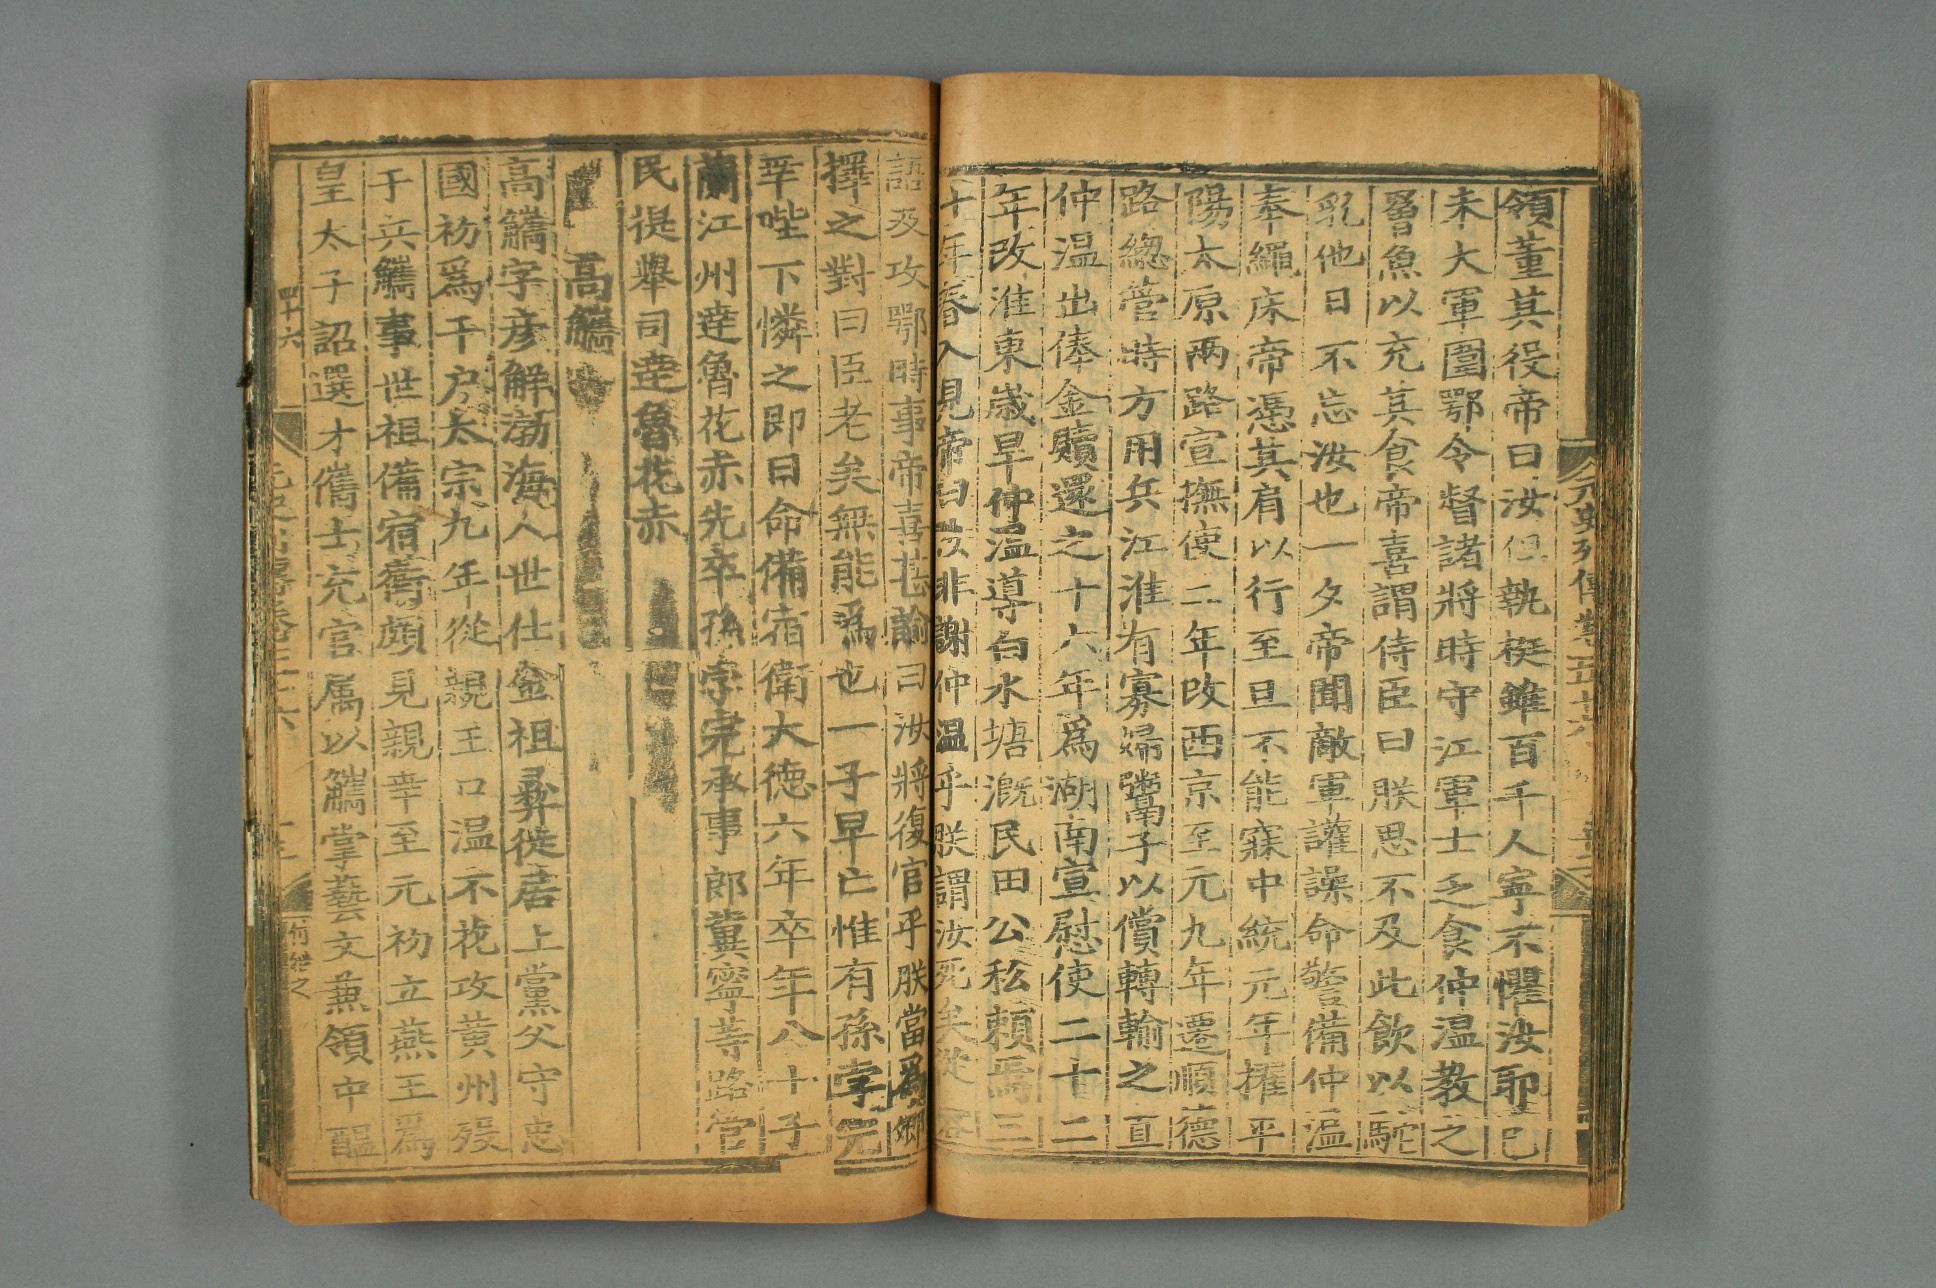 領董其役帝曰汝但執梃雖百千人寧不懼汝耶已
未大軍圍鄂令督諸將時守江軍士乏食仲温教之
罾魚以充其食帝喜謂侍臣曰朕思不及此飲以駝
乳他日不忘汝也一夕帝聞敵軍讙譟命警備仲温
奉繩床帝憑其肩以行至旦不能寐中統元年擢平
陽太原兩路宣撫使二年改西京至元九年遷順德
路總管時方用兵江淮有寡婦鬻子以償轉輸之直
仲温出俸金贖還之十六年為湖南宣慰使二十二
年改淮東歲旱仲温導白水塘溉民田公私賴焉三
十年春入見帝曰汝非謝仲温乎朕謂汝死矣從容
語及攻鄂時事帝喜甚諭曰汝將復官乎朕當為卿
擇之對曰臣老矣無能為也一子早亡惟有孫孛完
幸陛下憐之即日命備宿衛大德六年卒年八十子
蘭江州達魯花赤先卒孫孛完承事郎冀寧等路管
民提舉司達魯花赤
高觿
高觿字彥解渤海人世仕金祖彝徙居上黨父守忠
國初為千户太宗九年從親王口温不花攻黄州殁
于兵觿事世祖備宿衛頗見親幸至元初立燕王為
皇太子詔選才儁士充官属以觿掌藝文兼領中醖